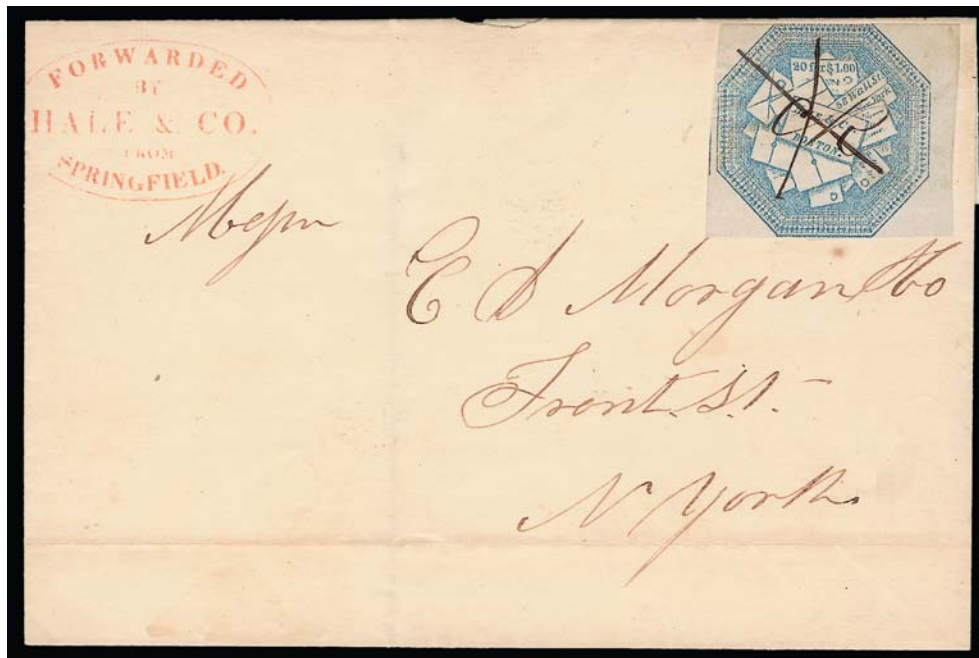 FORWARDED
BY
HALE & CO.
FROM
SPRINGFIELD.
20 for $1.00
58 Wall St
New-York
HALE & Co.
BOSTON.
Messrs
E D Morgan & Co
Front St.
N York